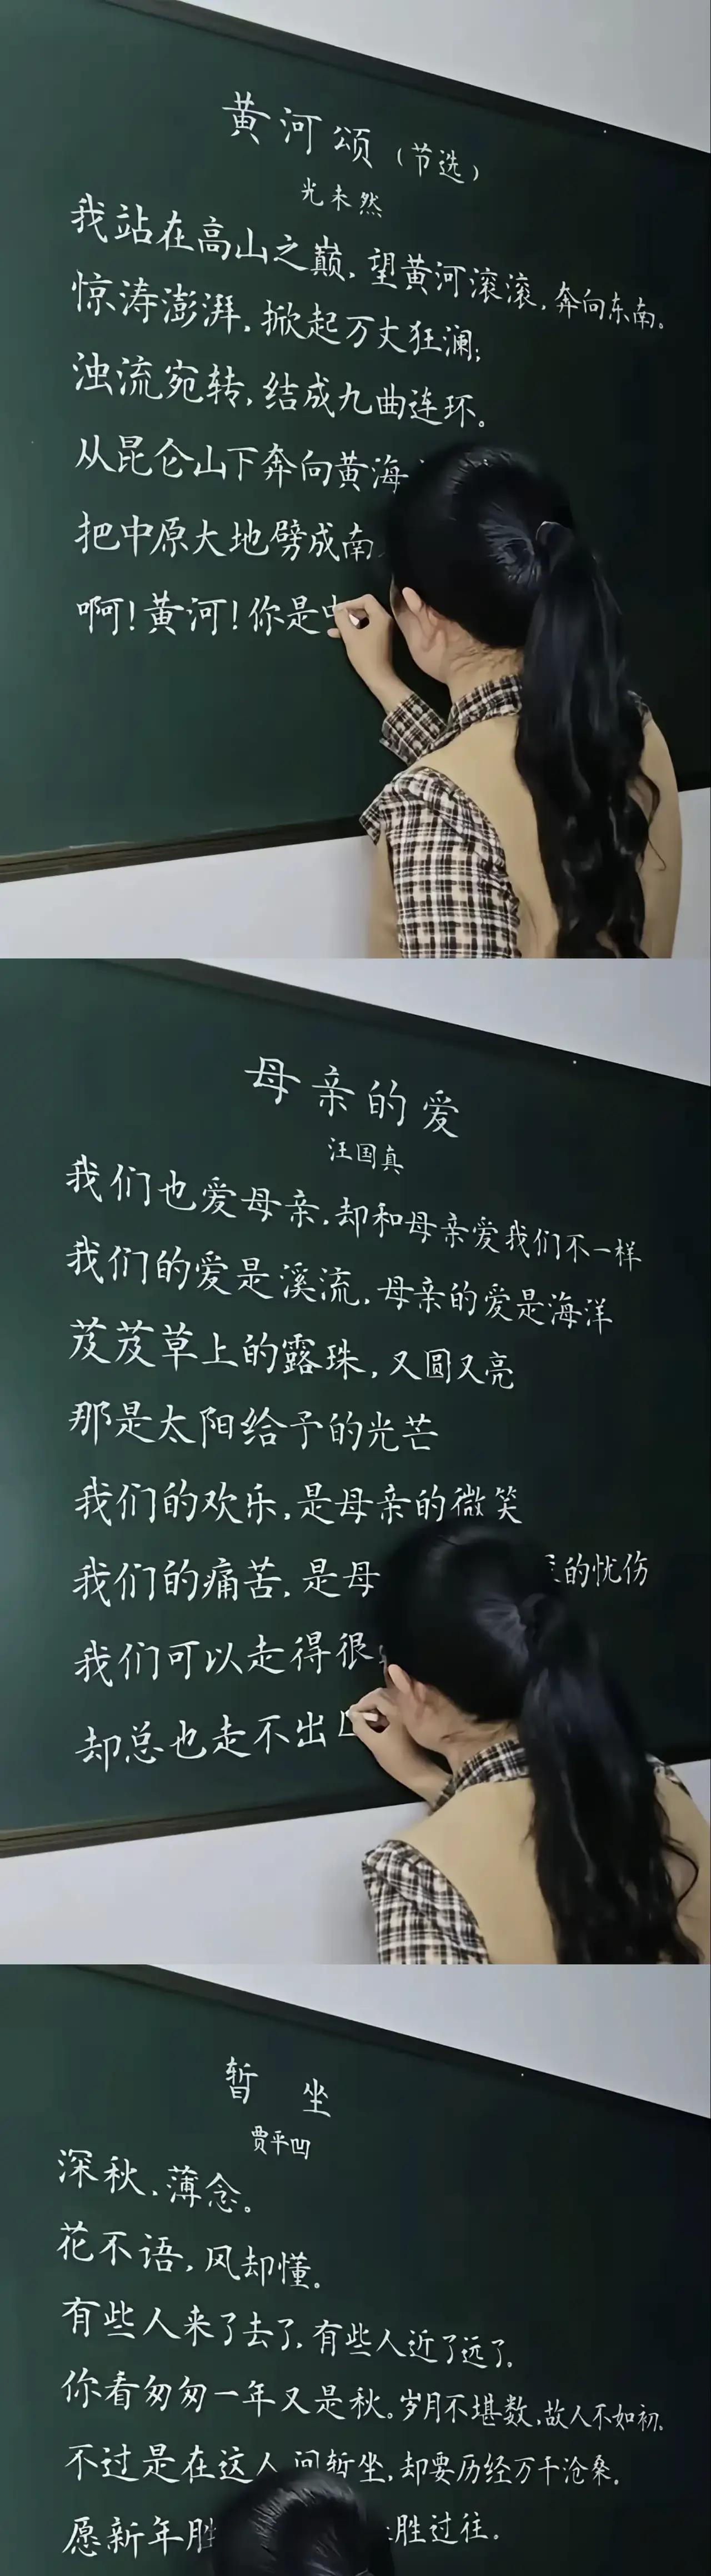 黄河颂(节选)
光未然
我站在高山之巅,望黄河滚滚,奔向东南。
惊涛澎湃,掀起万丈狂澜;
浊流宛转,结成九曲连环。
从昆仑山下奔向黄海
把中原大地劈成南
啊!黄河!你是
母亲的爱
汪国真
我们也爱母亲,却和母亲爱我们不一样
我们的爱是溪流,母亲的爱是海洋
芨芨草上的露珠,又圆又亮
那是太阳给予的光芒
我们的欢乐,是母亲的微笑
我们的痛苦,是母 的忧伤
我们可以走得很
却总也走不出
暂坐
贾平凹
深秋,薄念。
花不语,风却懂。
有些人来了去了,有些人近了远了,
你看匆匆一年又是秋。岁月不堪数,故人不如初,
不过是在这人间暂坐,却要历经万千沧桑。
愿新年胜 胜过往。